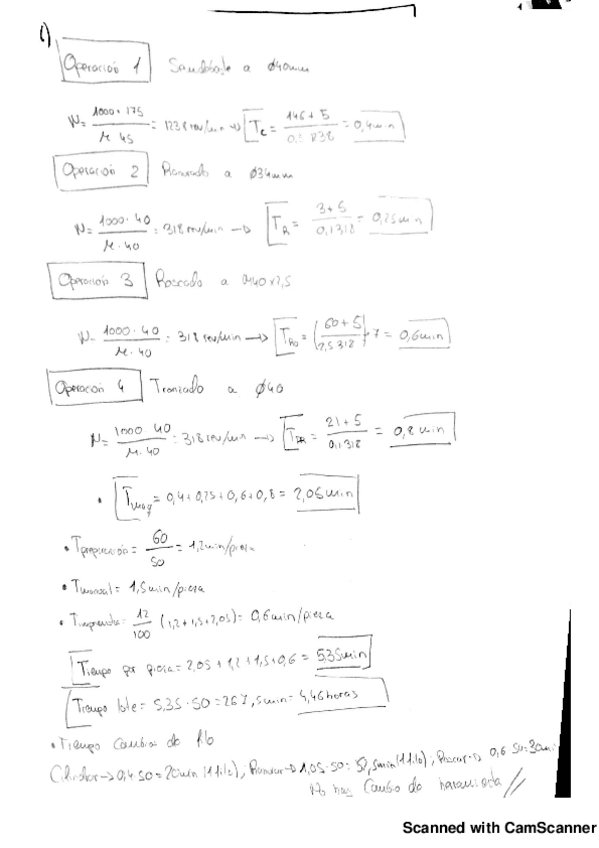 1)
Operación 1 a ø40mm
N= 1000·175 / π·45 = 1238 rev/min → Tc = 146+5 / 0,3·1238 = 0,4min
Operación 2 Ranurado a ø34mm
N= 1000·40 / π·40 = 318 rev/min → TR = 3+5 / 0,1·318 = 0,25min
Operación 3 Roscado a
N= 1000·40 / π·40 = 318 rev/min → TRo = (60+5 / 2,5·318)·7 = 0,6min
Operación 4 Tronzado a ø40
N= 1000·40 / π·40 = 318 rev/min → = 21+5 / 0,1·318 = 0,8min
• Tmaq = 0,4+0,25+0,6+0,8 = 2,05min
• Tpreparación = 60 / 50 = 1,2min/pieza
• Tmanual = 1,5min/pieza
• = 12 / 100 (1,2+1,5+2,05) = 0,6min/pieza
Tiempo por pieza = 2,05+1,2+1,5+0,6 = 5,35min
Tiempo lote = 5,35·50 = 267,5min = 4,46horas
• Tiempo cambio de filo
Cilindrar → 0,4·50 = 20min (1 filo), Ranurar → 1,05·50 = 52,5min (1 filo), Roscar → 0,6·50 = 30min
No hay cambio de herramienta //
Scanned with CamScanner